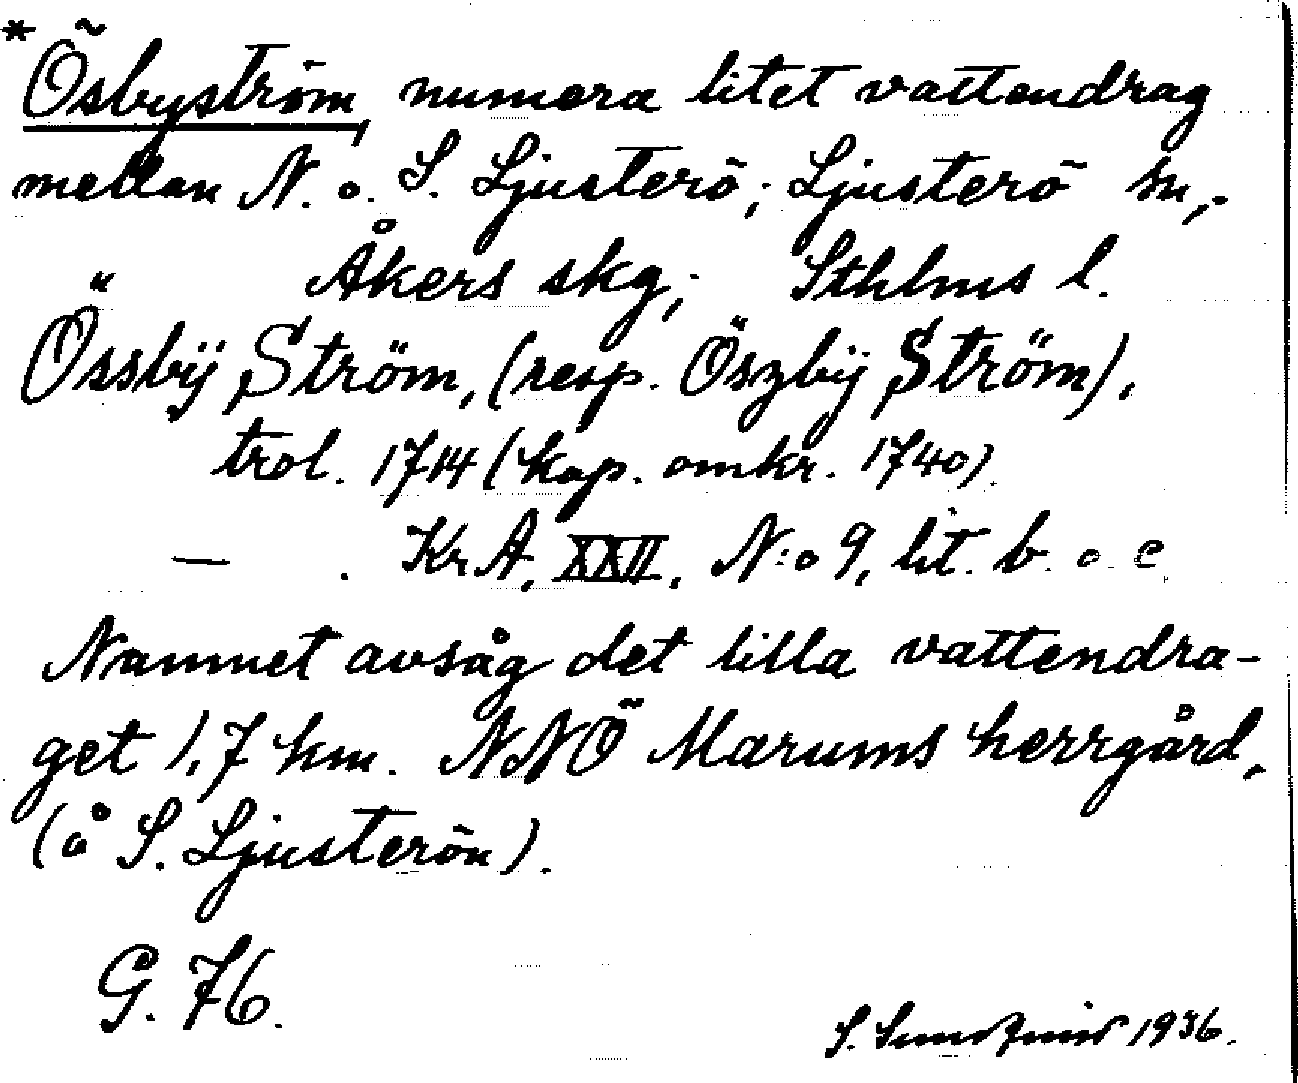 * Ösbyström, numera litet vattendrag
mellan N. o. S. Ljusterö; Ljusterö sn,
Åkers skg; Sthlms l.
Össbÿ Ström, (resp. Öszbÿ Ström),
trol. 1714 (kop. omkr. 1740).
— . Kr A, XXII, N:o 9, lit. b. o c
Namnet avsåg det lilla vattendra-
get 1,7 km. NNÖ Marums herrgård,
(å S. Ljusterön).
G. 76.
S. 1936.